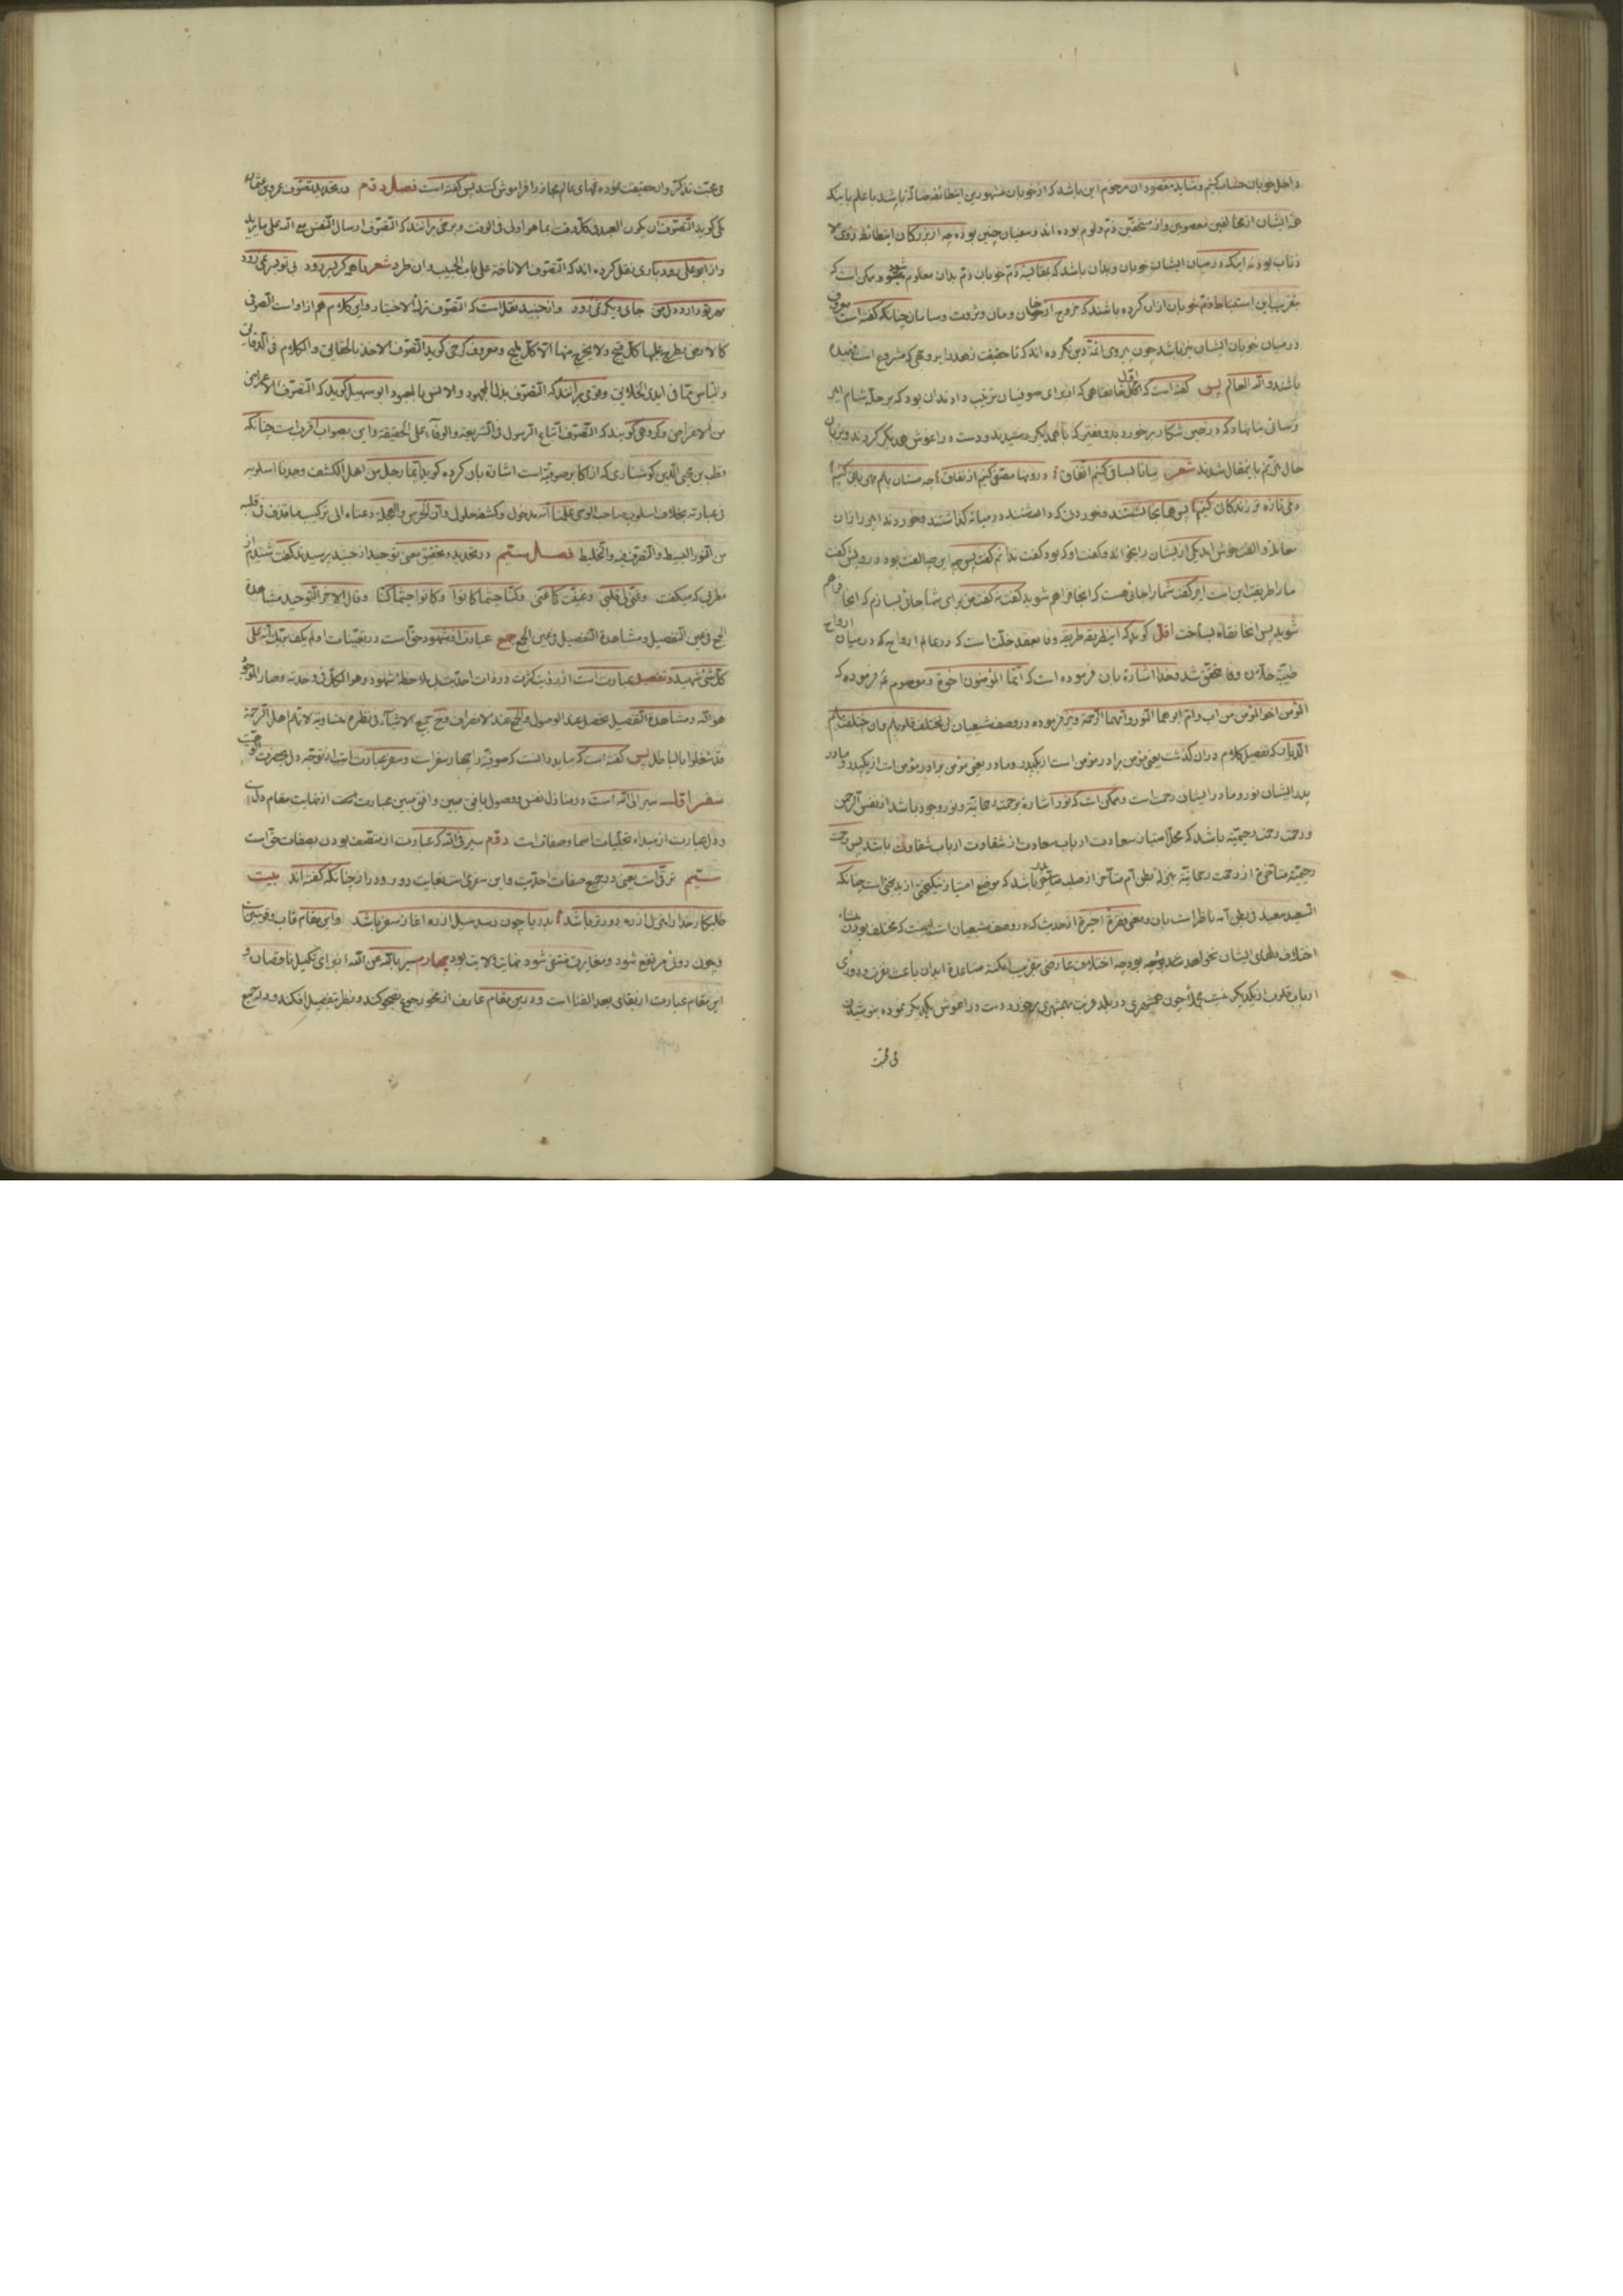 داخل خوبان حساب کنیم و شاید مقصود ان مرحوم این باشد که از خوبان مشهورین این طائفه ضاله باشد با علم باینکه
همه ایشان از مخالفین معصومین و از مستحقین ذم و لوم بوده اند و سفیان چنین بوده چه از بزرگان این طائفه
در میان ایشان خوبان و بدان باشد که بمقایسه ذم خوبان ذم بدان معلوم شود و ممکن است که
بتقریب این استنباط ذم خوبان از ان کرده باشند که خروج از خان و مان و ثروت و سامان چنانکه گفته است معروف
در میان خوبان ایشان نیز باشد چون پیروی ائمه دین نکرده اند که تا حقیقت زهد را بروجهی که مشروع است فهمیده
باشند و الله العالم پس گفته است که اول خانقاهی که از برای صوفیان ترتیب دادند ان بود که بر رمله شام امیر
ترسائی بنا نهاد که در حین شکار برخورد بدو فقیر که با همدیگر رسیدند و دست در اغوش همدیگر کردند و بزبان
حال مترنم باین مقال شدند شعر بیا تا بساقی کنیم اتفاق درونها مصفی کنیم از نفاق چه مستان بهم مهربانی کنیم
دمی تازه تر زندگانی کنیم پس همانجا نشستند و خوردنی که داشتند در میانه گذاشتند و خوردند امیر را از ان
معامله و الفت خوش امد یکی از ایشان را بخواند و گفت او که بود گفت ندانم گفت پس چه این چه الفت بود درویش گفت
ما را طریقت این است امیر گفت شما را جائی هست که انجا فراهم شوید گفت نه گفت من برای شما جائی بسازم که انجا فراهم
شوید پس انخانقاه بساخت اقول گوید که این طریقه طریقه وفا بعهد خلت است که در عالم ارواح که در میان ارواح
طیبه خلاص وفا متحقق شد و خدا اشاره بان فرموده است که انما المؤمنون اخوة و معصوم ع فرموده که
المؤمن اخو المؤمن من اب و ام ابوهما النور و امهما الرحمة و نیز فرموده در وصف شیعیان لن یختلف قلوبهم و ان اختلف بهم
الدیار که تفصیل کلام در ان گذشت یعنی مؤمن برادر مؤمن است از یکپدر و مادر یعنی مؤمن برادر مؤمن است از یکپدر و مادر
پدر ایشان نور و مادر ایشان رحمت است و ممکن است که نور اشاره برحمت رحمانیه و نور وجود باشد از نفس الرحمن
و رحمت رحمت رحیمیه باشد که محل امتیاز سعادت ارباب سعادت از شقاوت ارباب شقاوت باشد پس رحمت
رحیمیه متأخره از رحمت رحمانیه بمنزله بطن ام متأخر از صلب باشد که موضع امتیاز نیکبختی از بدبختی است چنانکه
السعید سعید فی بطن امه ناظر است بان و معنی فقره اخیره از حدیث که در وصف شیعیان است اینست که مختلف بودن
اختلاف دلهای ایشان نخواهد شد بوجهی چه اختلاف عارضی بتقریب امکنه متباعده ابدان باعث تفرق و دوری
ارباب قلوب از یکدیگر نیست چون همشهری در بلد غربت بهمشهری برخورد دست در اغوش یکدیگر نموده
فی محبت
فی محبت تذکر و از حقیقت نموده غمهای عالم مجاز را فراموش کنند پس گفته است فصل دوم در تحدید تصوف عمرو بن عثمان
مکی گوید التصوف ان یکون العبد فی کل وقت بما هو اولی فی الوقت و برخی برانند که التصوف ارسال النفس مع الله علی ما یرید
و از ابو علی رودباری نقل کرده اند که التصوف الاناخة علی باب الحبیب و ان طرد شعر
مهر تو دارد دل من جای دیگر نمی رود و از جنید نقل است که التصوف ترک الاختیار و این کلام هم از او است الصوفی
کالارض یطرح علیها کل قبیح و لا یخرج منها الا کل ملیح و معروف کرخی گوید التصوف الاخذ بالحقایق و الکلام فی الدقایق
و الیأس عما فی ایدی الخلایق و قومی برانند که التصوف بذل المجهود و الانس بالمعبود ابو سهیل گوید که التصوف الاعراض
من الاعراض و گروهی گویند که التصوف اتباع الرسول فی الشریعة و الوفاء علی الحقیقة و این بصواب اقرب است چنانکه
قطب بن محیی الدین کوشناری که از اکابر صوفیه است اشاره بان کرده گوید انما رجل من اهل الکشف وجدنا اسلوبه
فی عبارته بخلاف اسلوب صاحب الوحی علمنا انه مدخول و کشفه معلول و ان الحرص و العجلة دعتاه الی ترکیب ما قذف فی قلبه
من النور البسیط و التصرف فیه و التخلیط فصل سیم در تحدید و تحقیق معنی توحید از جنید پرسیدند گفت شنیدم از
مطربی که میگفت و غنی لی قلبی و غنیت کما غنی و کنا حیثما کانوا و کانوا حیثما کنا و قال الاخر التوحید مشاهدة
الجمع فی عین التفصیل و مشاهدة التفصیل فی عین الجمع جمع عبارت از شهود حق است در تعینات اولم یکف بربک انه علی
کل شیء شهید و تفصیل عبارت است از رؤیت کثرت در ذات احدیت بل ملاحظه شهود و هو الکل فی وحدته و صار الموجود
هو الله و مشاهدة التفصیل یحصل عند الوصول و الجمع عند الانصراف و ح جمیع الاشیاء فی نظره متساویة لا تلم اهل الرحمة
قد شغلوا بالباطل پس گفته است که باید دانست که صوفیه را چهار سفر است و سفر عبارت است از توجه دل بحضرت الوهیت
سفر اول سیر الی الله است در منازل نفس و وصول بافق مبین و افق مبین عبارت است از نهایت مقام دل است
و دل عبارت از مبداء تجلیات اسما و صفات است دوم سیر فی الله که عبارت از متصف بودن بصفات حق است
سیم ترقی است یعنی در جمیع صفات احدیت و این سفری است بغایت دور و دراز چنانکه گفته اند بیت
طلبکار خدا را منزل از ره دورتر باشد بدریا چون رسد سیل از ره اغاز سفر باشد و این مقام قاب قوسین است
و چون دوئی مرتفع شود و مغایرت منتفی شود نهایت ولایت بود چهارم سیر بالله عن الله از برای تکمیل ناقصان و
این مقام عبارت از بقای بعد الفنا است و درین مقام عارف از محو رجوع بصحو کند و نظر بتفصیل افکند و در جمیع